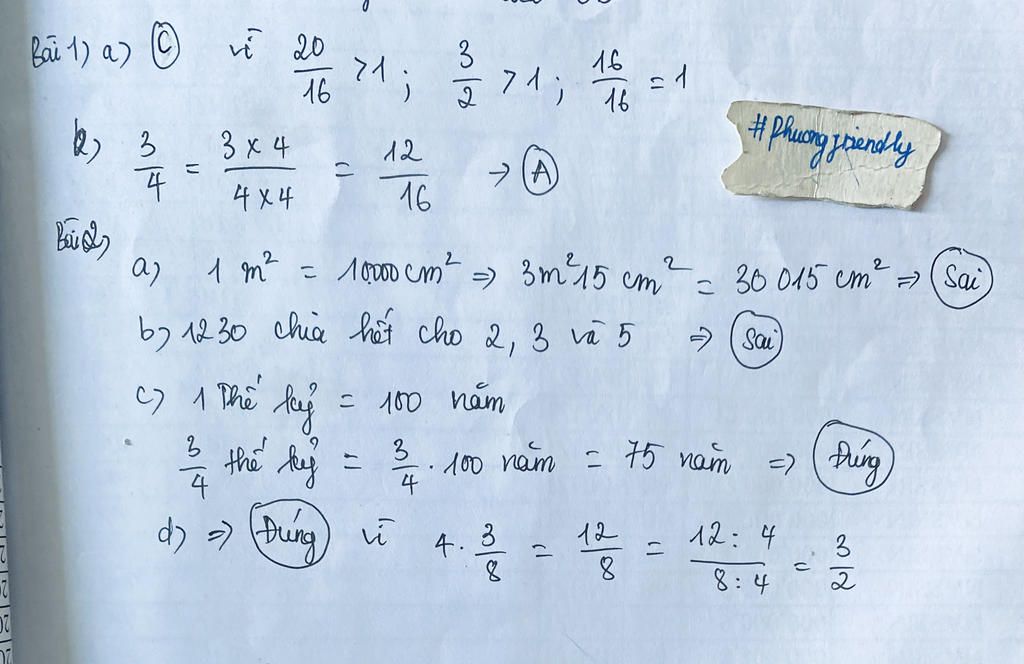 Bài 1) a) C vì 20/16 > 1 ; 3/2 > 1 ; 16/16 = 1
#Phuongfriendly
b) 3/4 = 3 x 4 / 4 x 4 = 12/16 → A
Bài 2)
a) 1 m² = 10.000 cm² => 3m² 15 cm² = 30 015 cm² => Sai
b) 1230 chia hết cho 2, 3 và 5 => Sai
c) 1 Thế kỷ = 100 năm
3/4 thế kỷ = 3/4 . 100 năm = 75 năm => Đúng
d) => Đúng vì 4 . 3/8 = 12/8 = 12 : 4 / 8 : 4 = 3/2